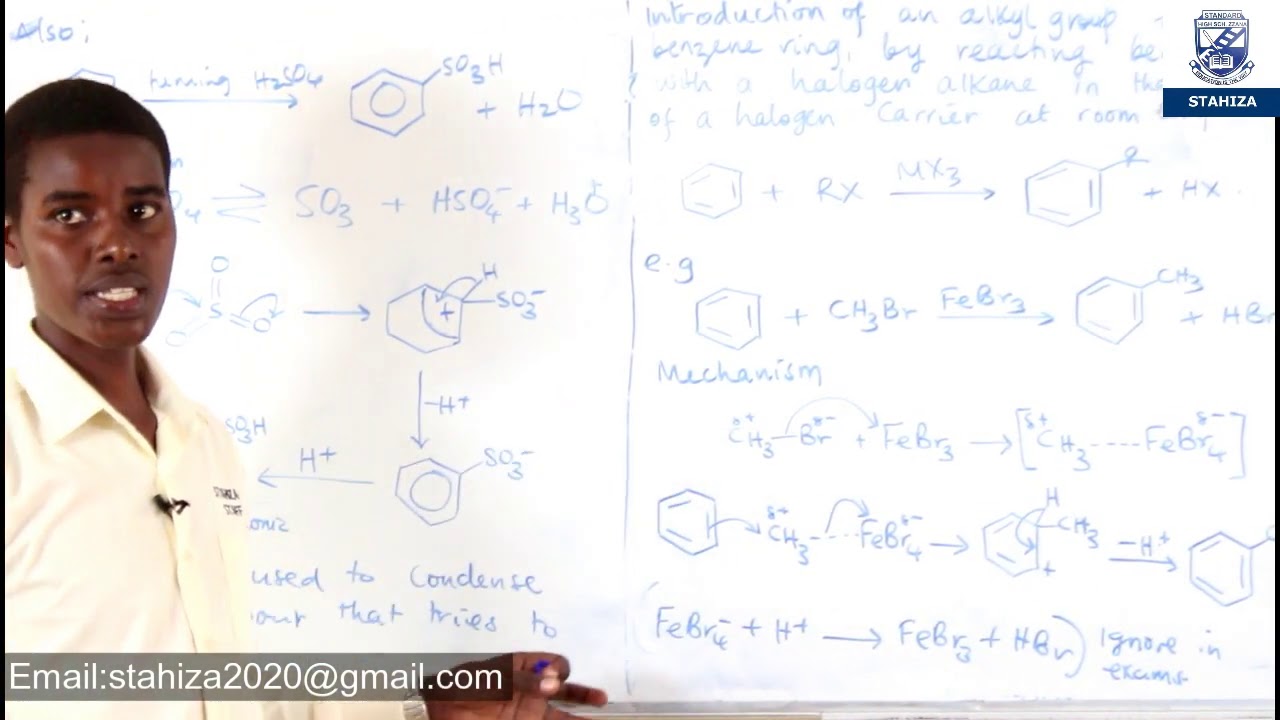 Also;
fuming H₂SO₄
SO₃H
+ H₂O
⇌ SO₃ + HSO₄⁻ + H₃O⁺
O
S
O
O
H
SO₃⁻
+
-H⁺
SO₃⁻
H⁺
SO₃H
used to condense
that tries to
Introduction of an alkyl group
benzene ring, by reacting
with a halogen alkane in
of a halogen carrier at room
+ RX MX₃ → R + HX.
e.g
+ CH₃Br FeBr₃ → CH₃ + HBr
Mechanism
δ+ δ-
CH₃-Br + FeBr₃ → [δ+CH₃----FeBr₄δ-]
δ+CH₃----FeBr₄δ- → H CH₃ + -H⁺ →
(FeBr₄⁻ + H⁺ → FeBr₃ + HBr) Ignore in
exams
STANDARD
HIGH SCH. ZZANA
STAHIZA
STAHIZA
STAFF
Email:stahiza2020@gmail.com